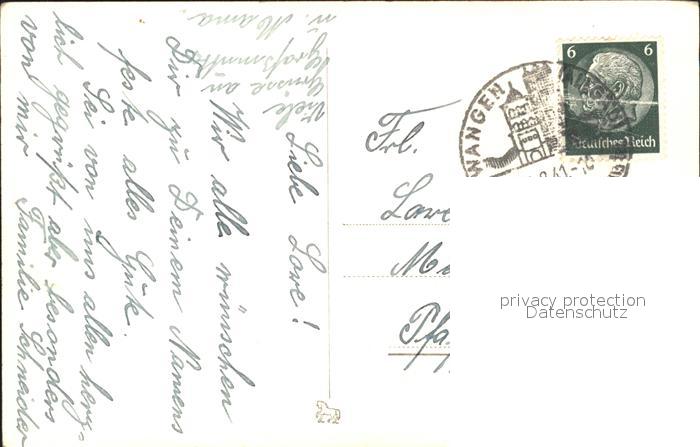 Liebe Lore!
Wir alle wünschen
Dir zu Deinem Namens
feste alles Gute.
Sei von uns allen herz-
lich gegrüßt aber besonders
von mir Familie Schneider
Viele
Grüsse an
Großmutter
u. Mama.
Frl.
Lore
Pfa
WANGEN
IM ALLGÄU
41
6 6
Deutsches Reich
privacy protection
Datenschutz